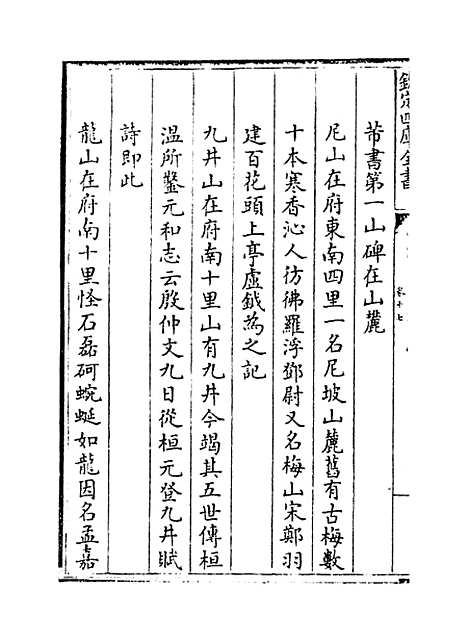 欽定四庫全書
卷十七
芾書第一山碑在山麓
尼山在府東南四里一名尼坡山麓舊有古梅數
十本寒香沁人彷彿羅浮鄧尉又名梅山宋鄭羽
建百花頭上亭盧鉞為之記
九井山在府南十里山有九井今竭其五世傳桓
溫所鑿元和志云殷仲文九日從桓元登九井賦
詩即此
龍山在府南十里怪石磊砢蜿蜒如龍因名孟嘉